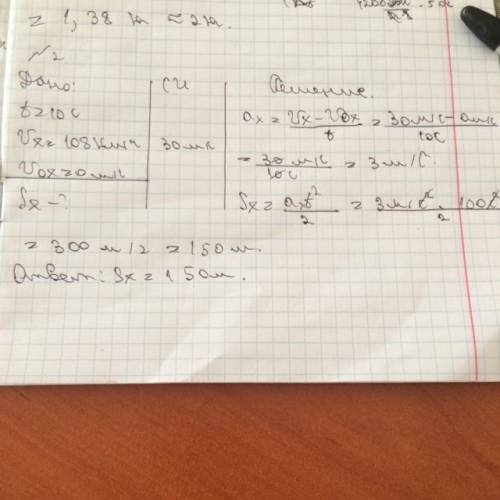 = 1,38 м ≈ 2 м.
№2
Дано: СИ Решение.
t=10с ax = Vx-Vox/t = 30м/с-0м/с/10с
Vx=108км/ч 30м/с
Vox=0м/с = 30м/с/10с = 3м/с².
Sx-? Sx = axt²/2 = 3м/с²·100с²/2
= 300 м/2 = 150 м.
Ответ: Sx = 150м.